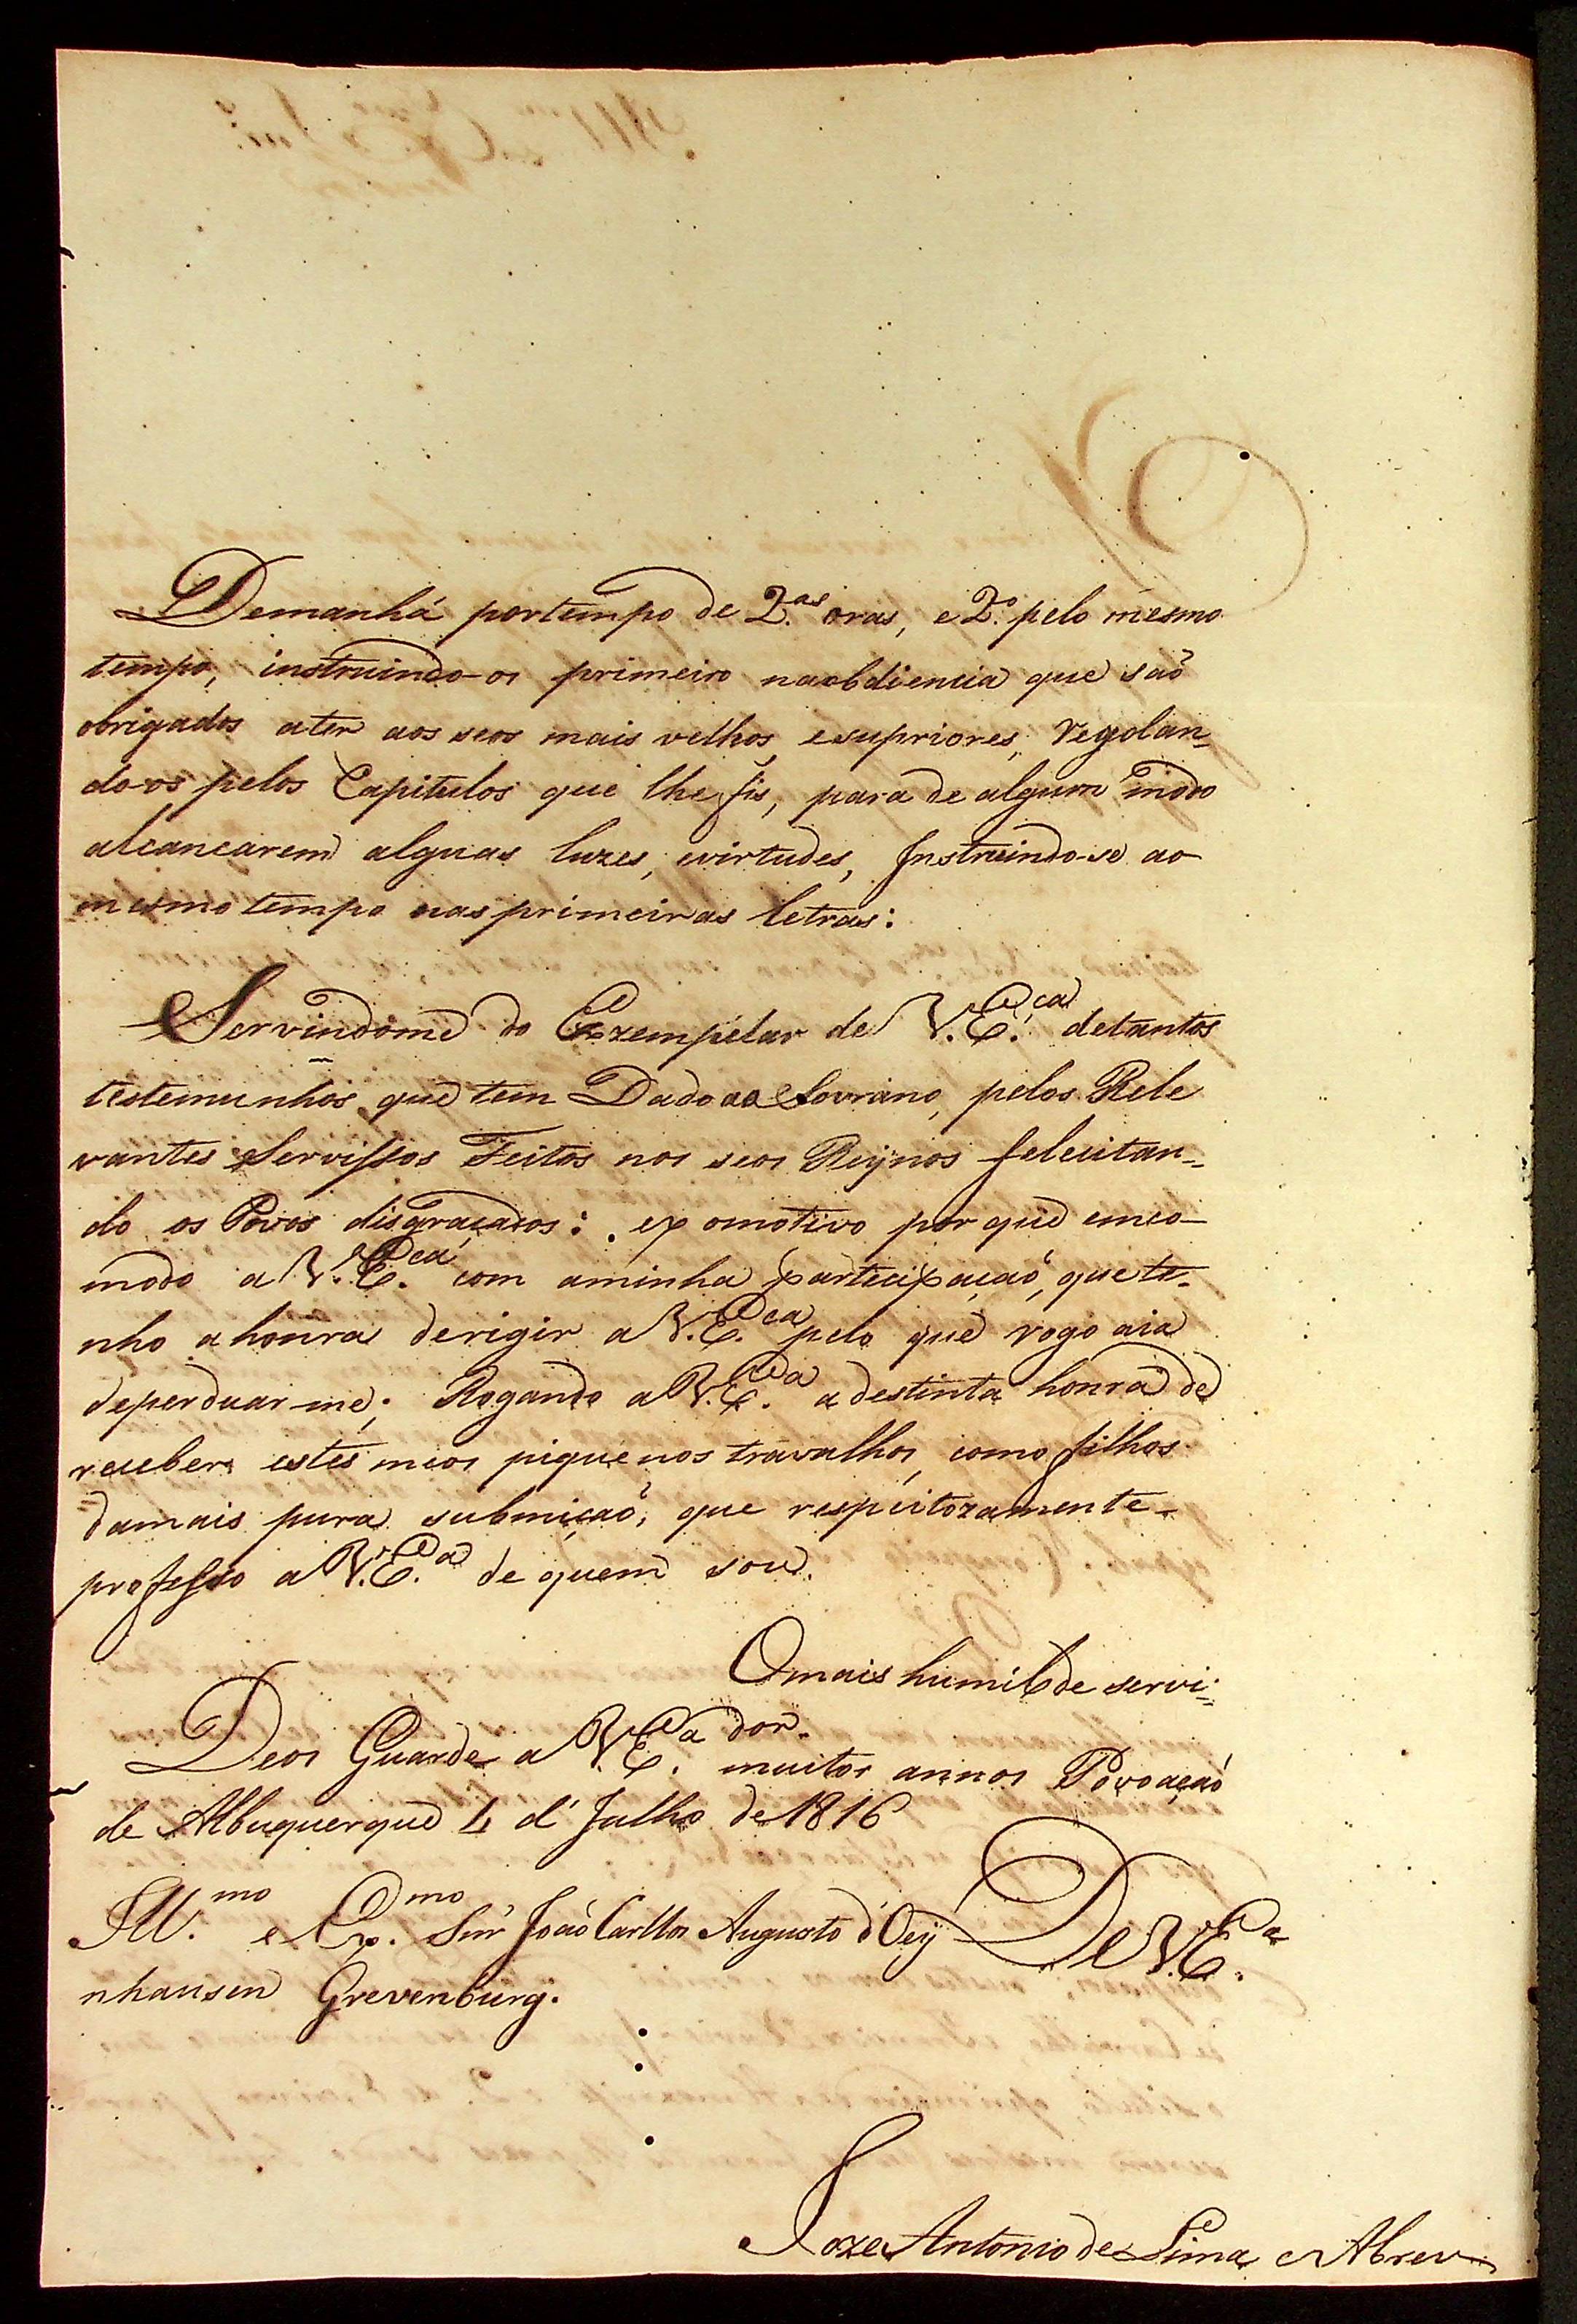 Demanhá portempo de 2.as oras, e 2.º pelo mesmo
tempo, instruindo-os primeiro naobdiencia que saõ
obrigados ater aos seos mais velhos, esupriores, Regolan-
do-os pelos Capitulos que lhe fis, para de algum modo
alcancarem alguas luzes, evirtudes, Instruindo-se ao
mesmo tempo nas primeiras letras:
Servindome do Exzempelar de V. Ex.ca detantos
testemunhos que tem Dado ao Sovrano, pelos Rele
vantes Servissos Feitos nos seos Reynos felecitan-
do os Povos disgraçados: omotivo porque emco-
modo a V. Ex.ca com aminha partecipaçaõ, que te-
nho ahonra derigir a V. Ex.ca pelo que rogo aia
deperduar-me; Rogando a V. Ex.a adestinta honra de
receber estes meos piquenos travalhos, como filhos
damais pura submiçaõ, que respeitozamente
professo a V. Ex.a de quem sou.
Omais humilde servi-
dor.
Deos Guarde a V. Ex.a muitos annos Povoaçaõ
de Albuquerque 4 d' Julho de 1816
Ill.mo e Ex.mo Snr João Carllos Augusto d'Oey
nhausen Grevenburg.
De V. Ex.a
Joze Antonio de Lima e Abreu